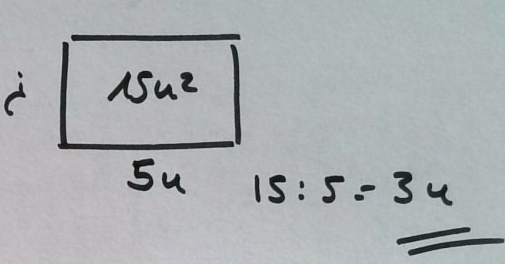 15u²
5u
15:5=3u